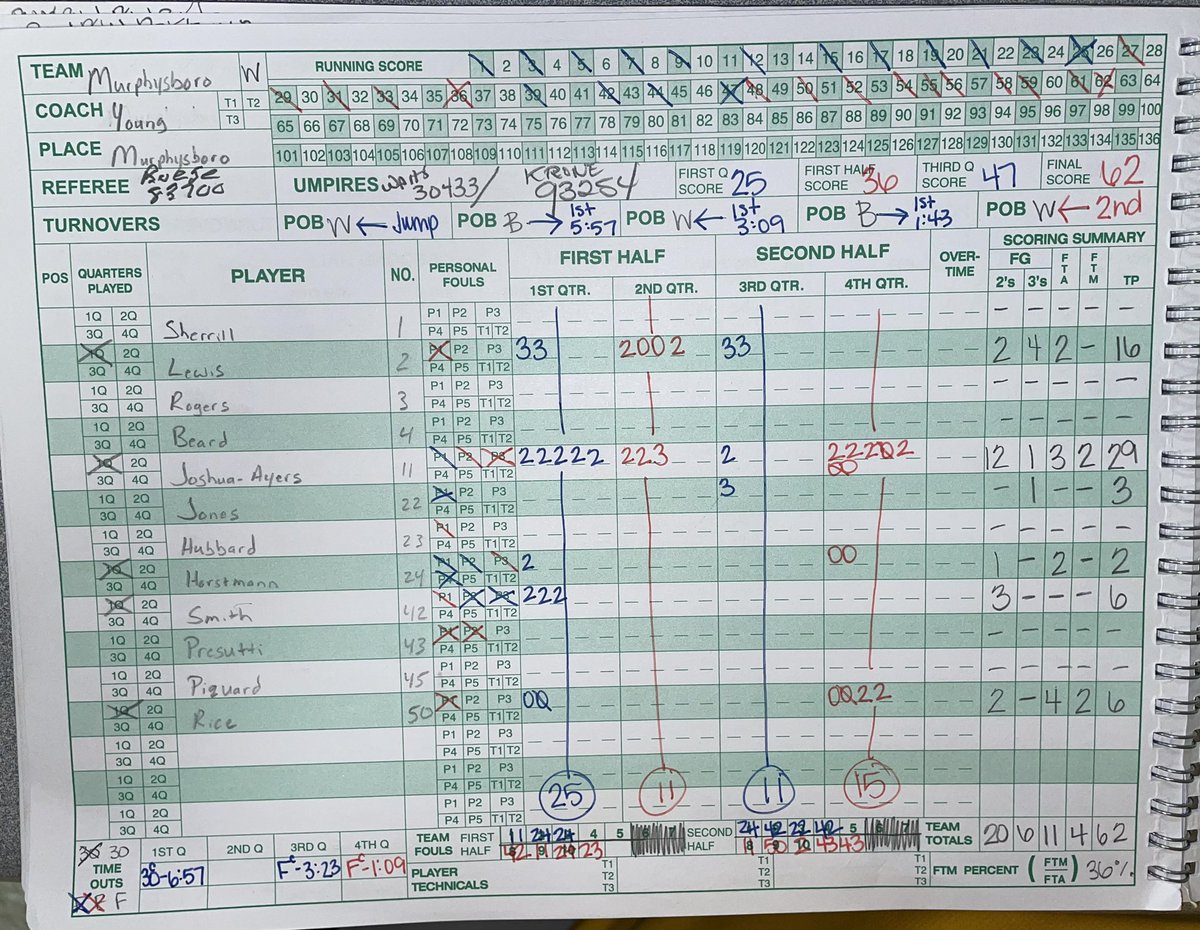 TEAM Murphysboro W RUNNING SCORE 1 2 3 4 5 6 7 8 9 10 11 12 13 14 15 16 17 18 19 20 21 22 23 24 25 26 27 28
29 30 31 32 33 34 35 36 37 38 39 40 41 42 43 44 45 46 47 48 49 50 51 52 53 54 55 56 57 58 59 60 61 62 63 64
COACH Young T1 T2 T3
65 66 67 68 69 70 71 72 73 74 75 76 77 78 79 80 81 82 83 84 85 86 87 88 89 90 91 92 93 94 95 96 97 98 99 100
PLACE Murphysboro
101 102 103 104 105 106 107 108 109 110 111 112 113 114 115 116 117 118 119 120 121 122 123 124 125 126 127 128 129 130 131 132 133 134 135 136
REFEREE 83700 UMPIRES 30433/ KRONE 93254/ FIRST Q SCORE 25 FIRST HALF SCORE 36 THIRD Q SCORE 47 FINAL SCORE 62
TURNOVERS POB W ← Jump POB B → 1st 5:57 POB W ← 1st 3:09 POB B → 1st 1:43 POB W ← 2nd
POS QUARTERS PLAYED PLAYER NO. PERSONAL FOULS FIRST HALF SECOND HALF OVER-TIME SCORING SUMMARY
1ST QTR. 2ND QTR. 3RD QTR. 4TH QTR. FG 2's 3's FTA FTM TP
1Q 2Q 3Q 4Q Sherrill 1 P1 P2 P3 P4 P5 T1 T2 - - - - -
1Q 2Q 3Q 4Q Lewis 2 P1 P2 P3 P4 P5 T1 T2 33 2002 33 2 4 2 - 16
1Q 2Q 3Q 4Q Rogers 3 P1 P2 P3 P4 P5 T1 T2 - - - - -
1Q 2Q 3Q 4Q Beard 4 P1 P2 P3 P4 P5 T1 T2 - - - - -
1Q 2Q 3Q 4Q Joshua-Ayers 11 P1 P2 P3 P4 P5 T1 T2 22222 223 2 12 1 3 2 29
1Q 2Q 3Q 4Q Jones 22 P1 P2 P3 P4 P5 T1 T2 3 - 1 - - 3
1Q 2Q 3Q 4Q Hubbard 23 P1 P2 P3 P4 P5 T1 T2 - - - - -
1Q 2Q 3Q 4Q Horstmann 24 P1 P2 P3 P4 P5 T1 T2 2 00 1 - 2 - 2
1Q 2Q 3Q 4Q Smith 42 P1 P2 P3 P4 P5 T1 T2 222 3 - - - 6
1Q 2Q 3Q 4Q Presutti 43 P1 P2 P3 P4 P5 T1 T2 - - - - -
1Q 2Q 3Q 4Q Piquard 45 P1 P2 P3 P4 P5 T1 T2 - - - - -
1Q 2Q 3Q 4Q Rice 50 P1 P2 P3 P4 P5 T1 T2 00 0022 2 - 4 2 6
1Q 2Q 3Q 4Q P1 P2 P3 P4 P5 T1 T2
1Q 2Q 3Q 4Q P1 P2 P3 P4 P5 T1 T2 25 11 11 15
1Q 2Q 3Q 4Q P1 P2 P3 P4 P5 T1 T2
30 30 TIME OUTS F 1ST Q 2ND Q 3RD Q F-3:23 4TH Q F-1:09
TEAM FOULS FIRST HALF 11 24 24 4 5 SECOND HALF 24 42 22 42 5 TEAM TOTALS 20 6 11 4 62
PLAYER TECHNICALS T1 T2 T3 T1 T2 T3 T1 T2 T3 FTM PERCENT (FTM/FTA) 36%